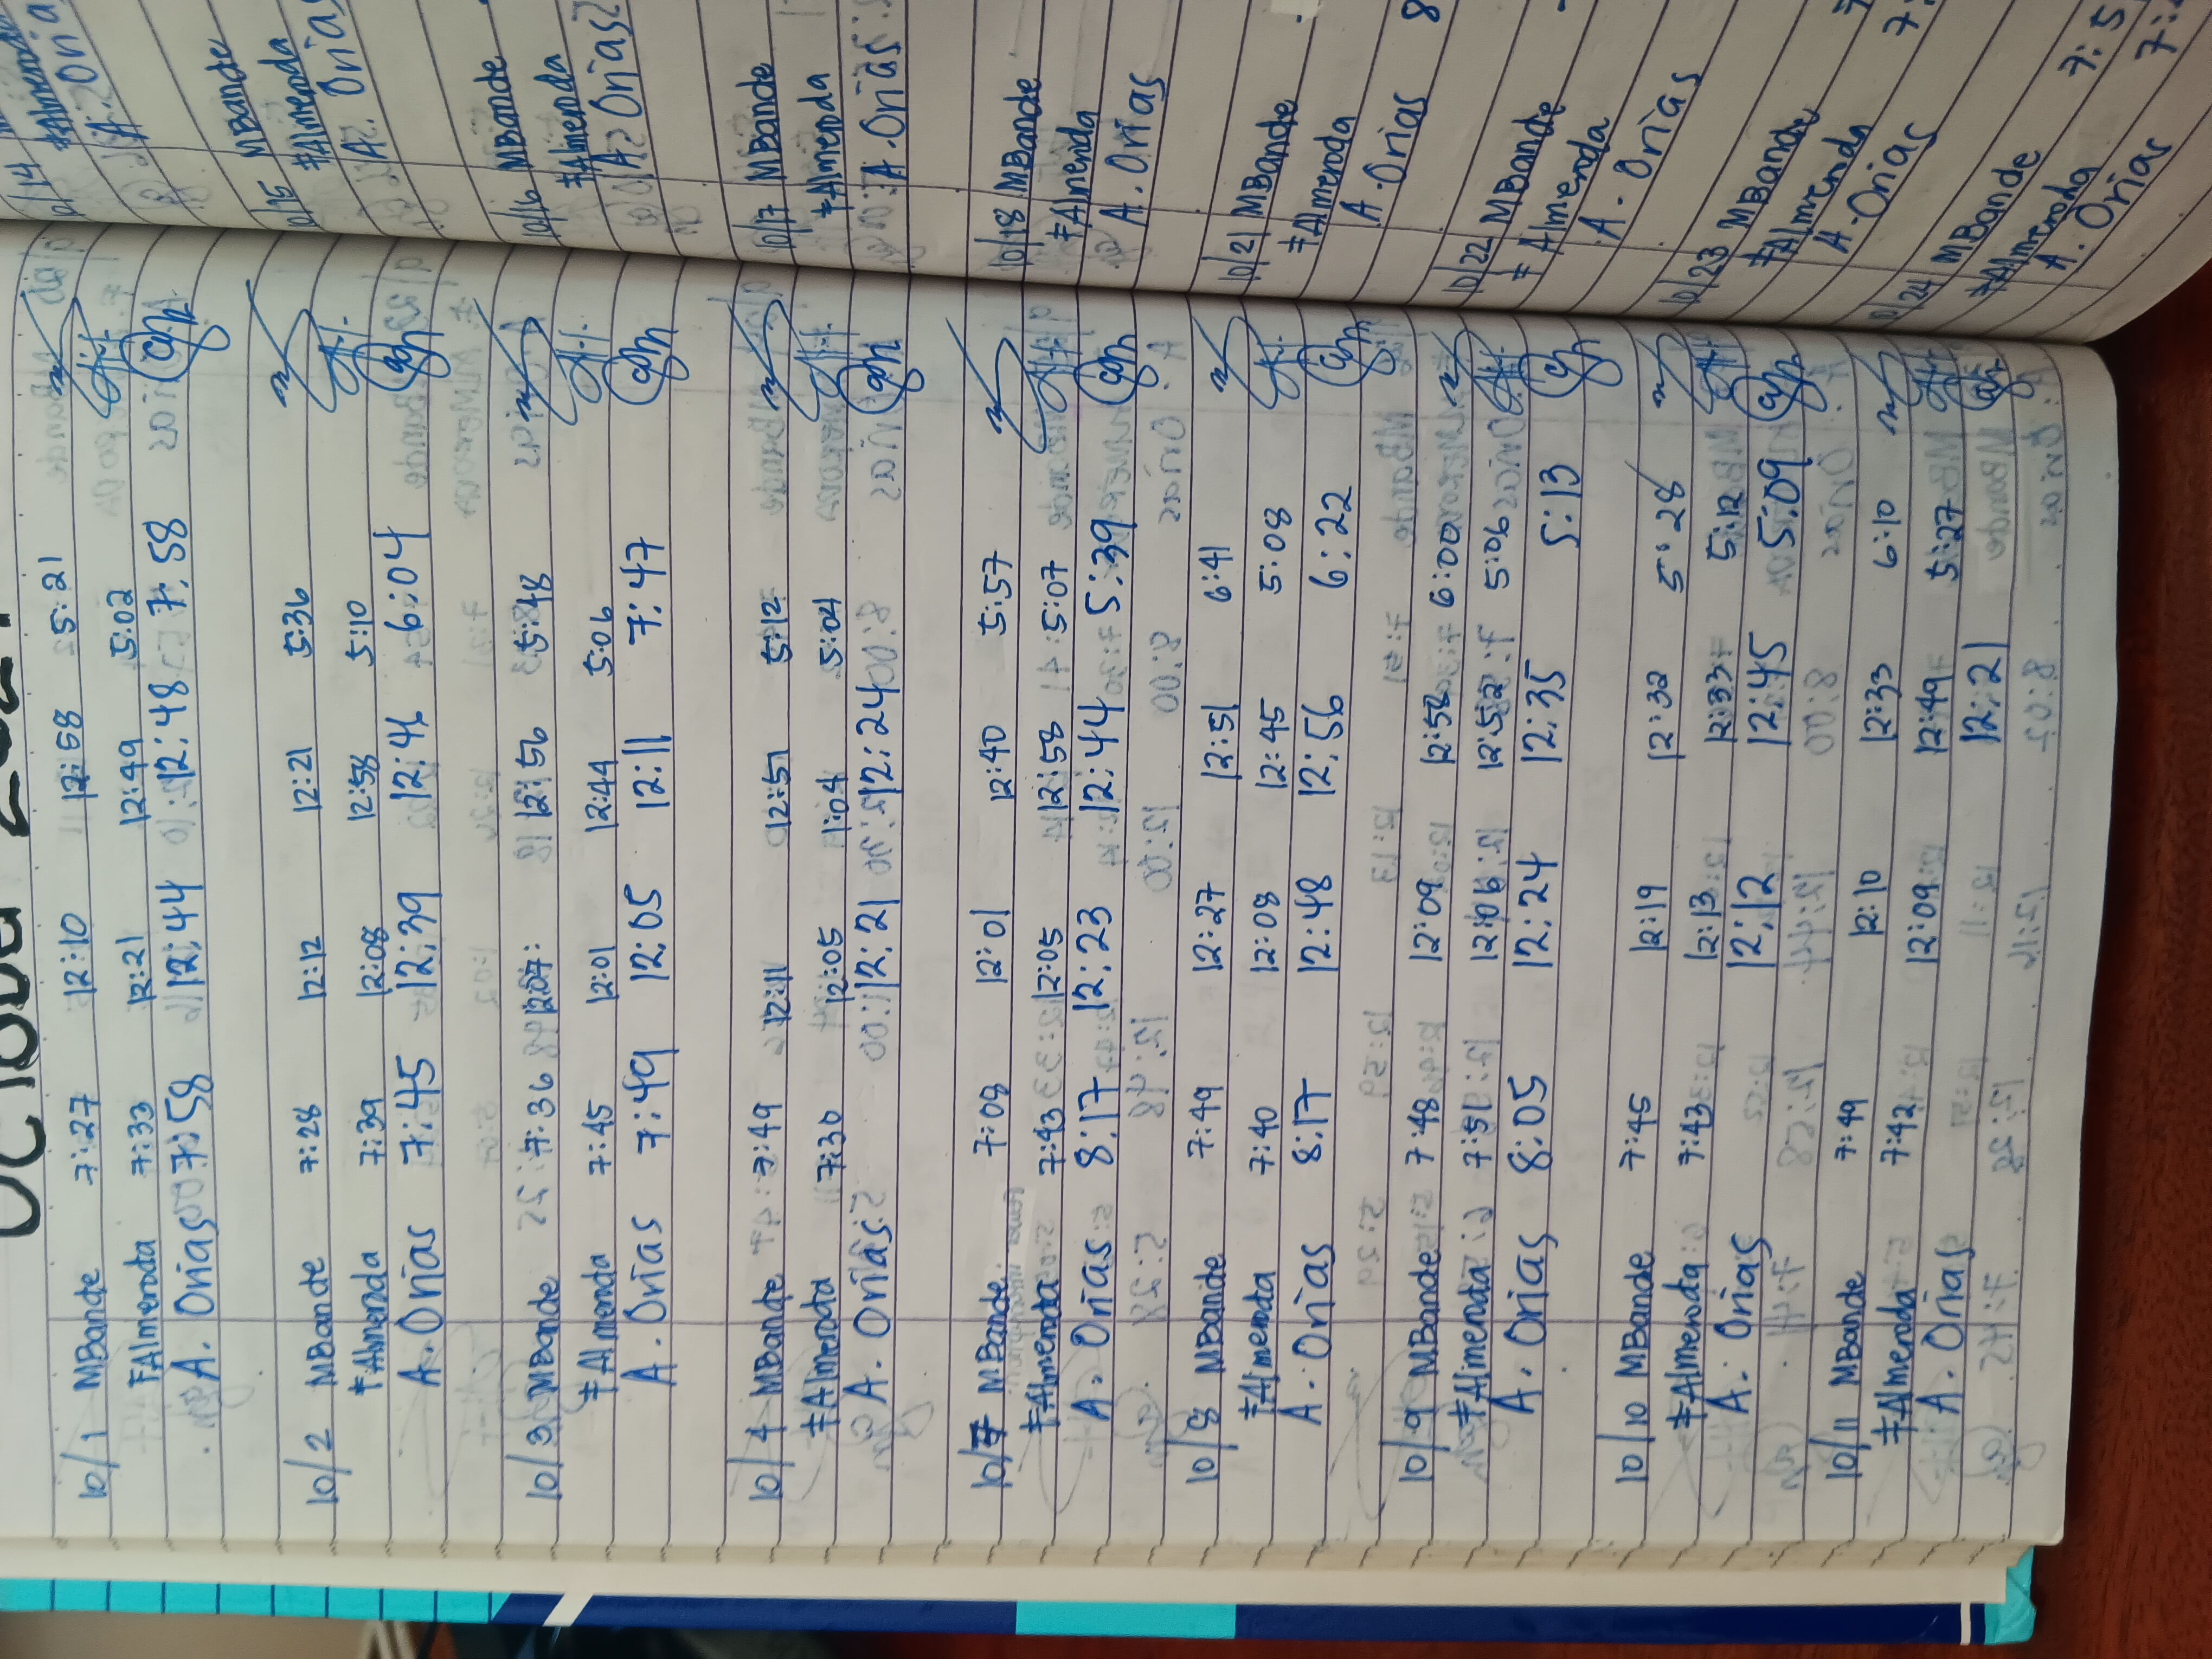 10/1 MBande 7:27 12:10 12:58 5:21
FAlmenda 7:33 12:21 12:49 5:02
A. Orias 7:58 12:44 12:48 7:58
10/2 MBande 7:28 12:12 12:21 5:36
FAlmenda 7:39 12:08 12:58 5:10
A. Orias 7:45 12:39 6:04
10/3 MBande 7:36 12:07 12:56 5:48
FAlmenda 7:45 12:01 12:44 5:06
A. Orias 7:49 12:05 12:11 7:47
10/4 MBande 7:49 12:11 12:51 5:12
FAlmenda 7:30 12:05 1:04 5:04
A. Orias 12:21 12:24
10/7 MBande 7:08 12:01 12:40 5:57
FAlmenda 7:43 12:05 12:58 5:07
A. Orias 8:17 12:23 12:44 5:39
10/8 MBande 7:49 12:27 12:51 6:41
FAlmenda 7:40 12:08 12:45 5:08
A. Orias 8:17 12:48 12:56 6:22
10/9 MBande 7:48 12:09 12:58 6:00
FAlmenda 7:51 12:06 12:52 5:06
A. Orias 8:05 12:24 12:35 5:13
10/10 MBande 7:45 12:19 12:32 5:28
FAlmenda 7:43 12:13 12:33 5:12
A. Orias 12:12 12:45 5:09
10/11 MBande 7:49 12:10 12:33 6:10
FAlmenda 7:42 12:09 12:49 5:27
A. Orias 12:21
10/14 FAlmenda
A. Oria
10/15 MBande
FAlmenda
A. Orias
10/16 MBande
FAlmenda
A. Orias
10/17 MBande
FAlmenda
A. Orias
10/18 MBande
FAlmenda
A. Orias
10/21 MBande
FAlmenda
A. Orias 8
10/22 MBande
FAlmenda
A. Orias
10/23 MBande
FAlmenda
A. Orias 7:
10/24 MBande
FAlmenda 7:5
A. Orias 7: